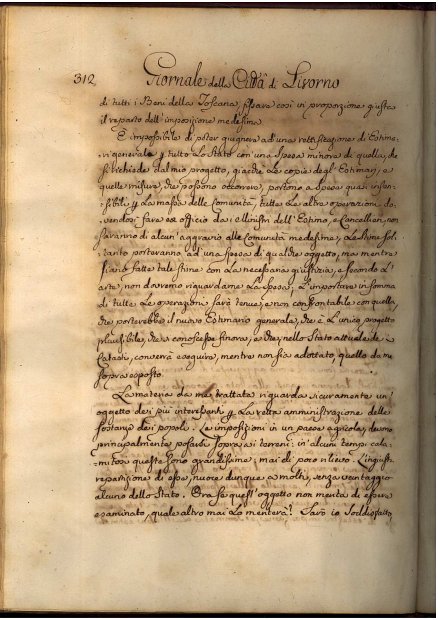 312 Giornale della Città di Livorno
di tutti i Beni della Toscana, si farà così in proporzione giusta
il reparto dell'imposizione medesima.
È impossibile di poter giugnere ad una rettificazione di Estima-
ri generale per tutto lo Stato con una spesa minore di quella, che
si richiede dal mio progetto, giacchè le copie degl'Estimarj, e
quelle misure, che possono occorrere, portono a spese quasi insen-
sibili per la massa delle Comunità, tutte le altre operazioni do-
vendosi fare ex officio dai Ministri dell'Estimo, e Cancellieri, non
saranno di alcun'aggravio alle Comunità medesime, le stime sol-
tanto porteranno ad una spesa di qualche oggetto, ma mentre
siano fatte tali stime con la necessaria giustizia, e secondo l'
arte, non dovremo riguardarne la spesa. L'importare in somma
di tutte le operazioni sarà tenue, e non confrontabile con quella,
che porterebbe il nuovo Estimario generale, che è l'unico progetto
plausibile, che si conoscesse finora, e che, nello Stato attuale de'
Catasti, converrà eseguire, mentre non sia adottato, quello da me
sopra esposto.
La materia da me trattata riguarda sicuramente un'
oggetto dei più interessanti per la retta amministrazione delle
sostanze dei popoli. Le imposizioni in un paese agricola, devono
principalmente posarsi sopra ai terreni: in alcuni tempi cala-
mitosi queste sono grandissime; mai di poco rilievo. L'ingiusta
repartizione di esse, nuoce dunque a molti, senza vantaggio
alcuno dello Stato. Ora se quest'oggetto non merita di essere
esaminato, quale altro mai lo meriterà? Sarò io soddisfatto,